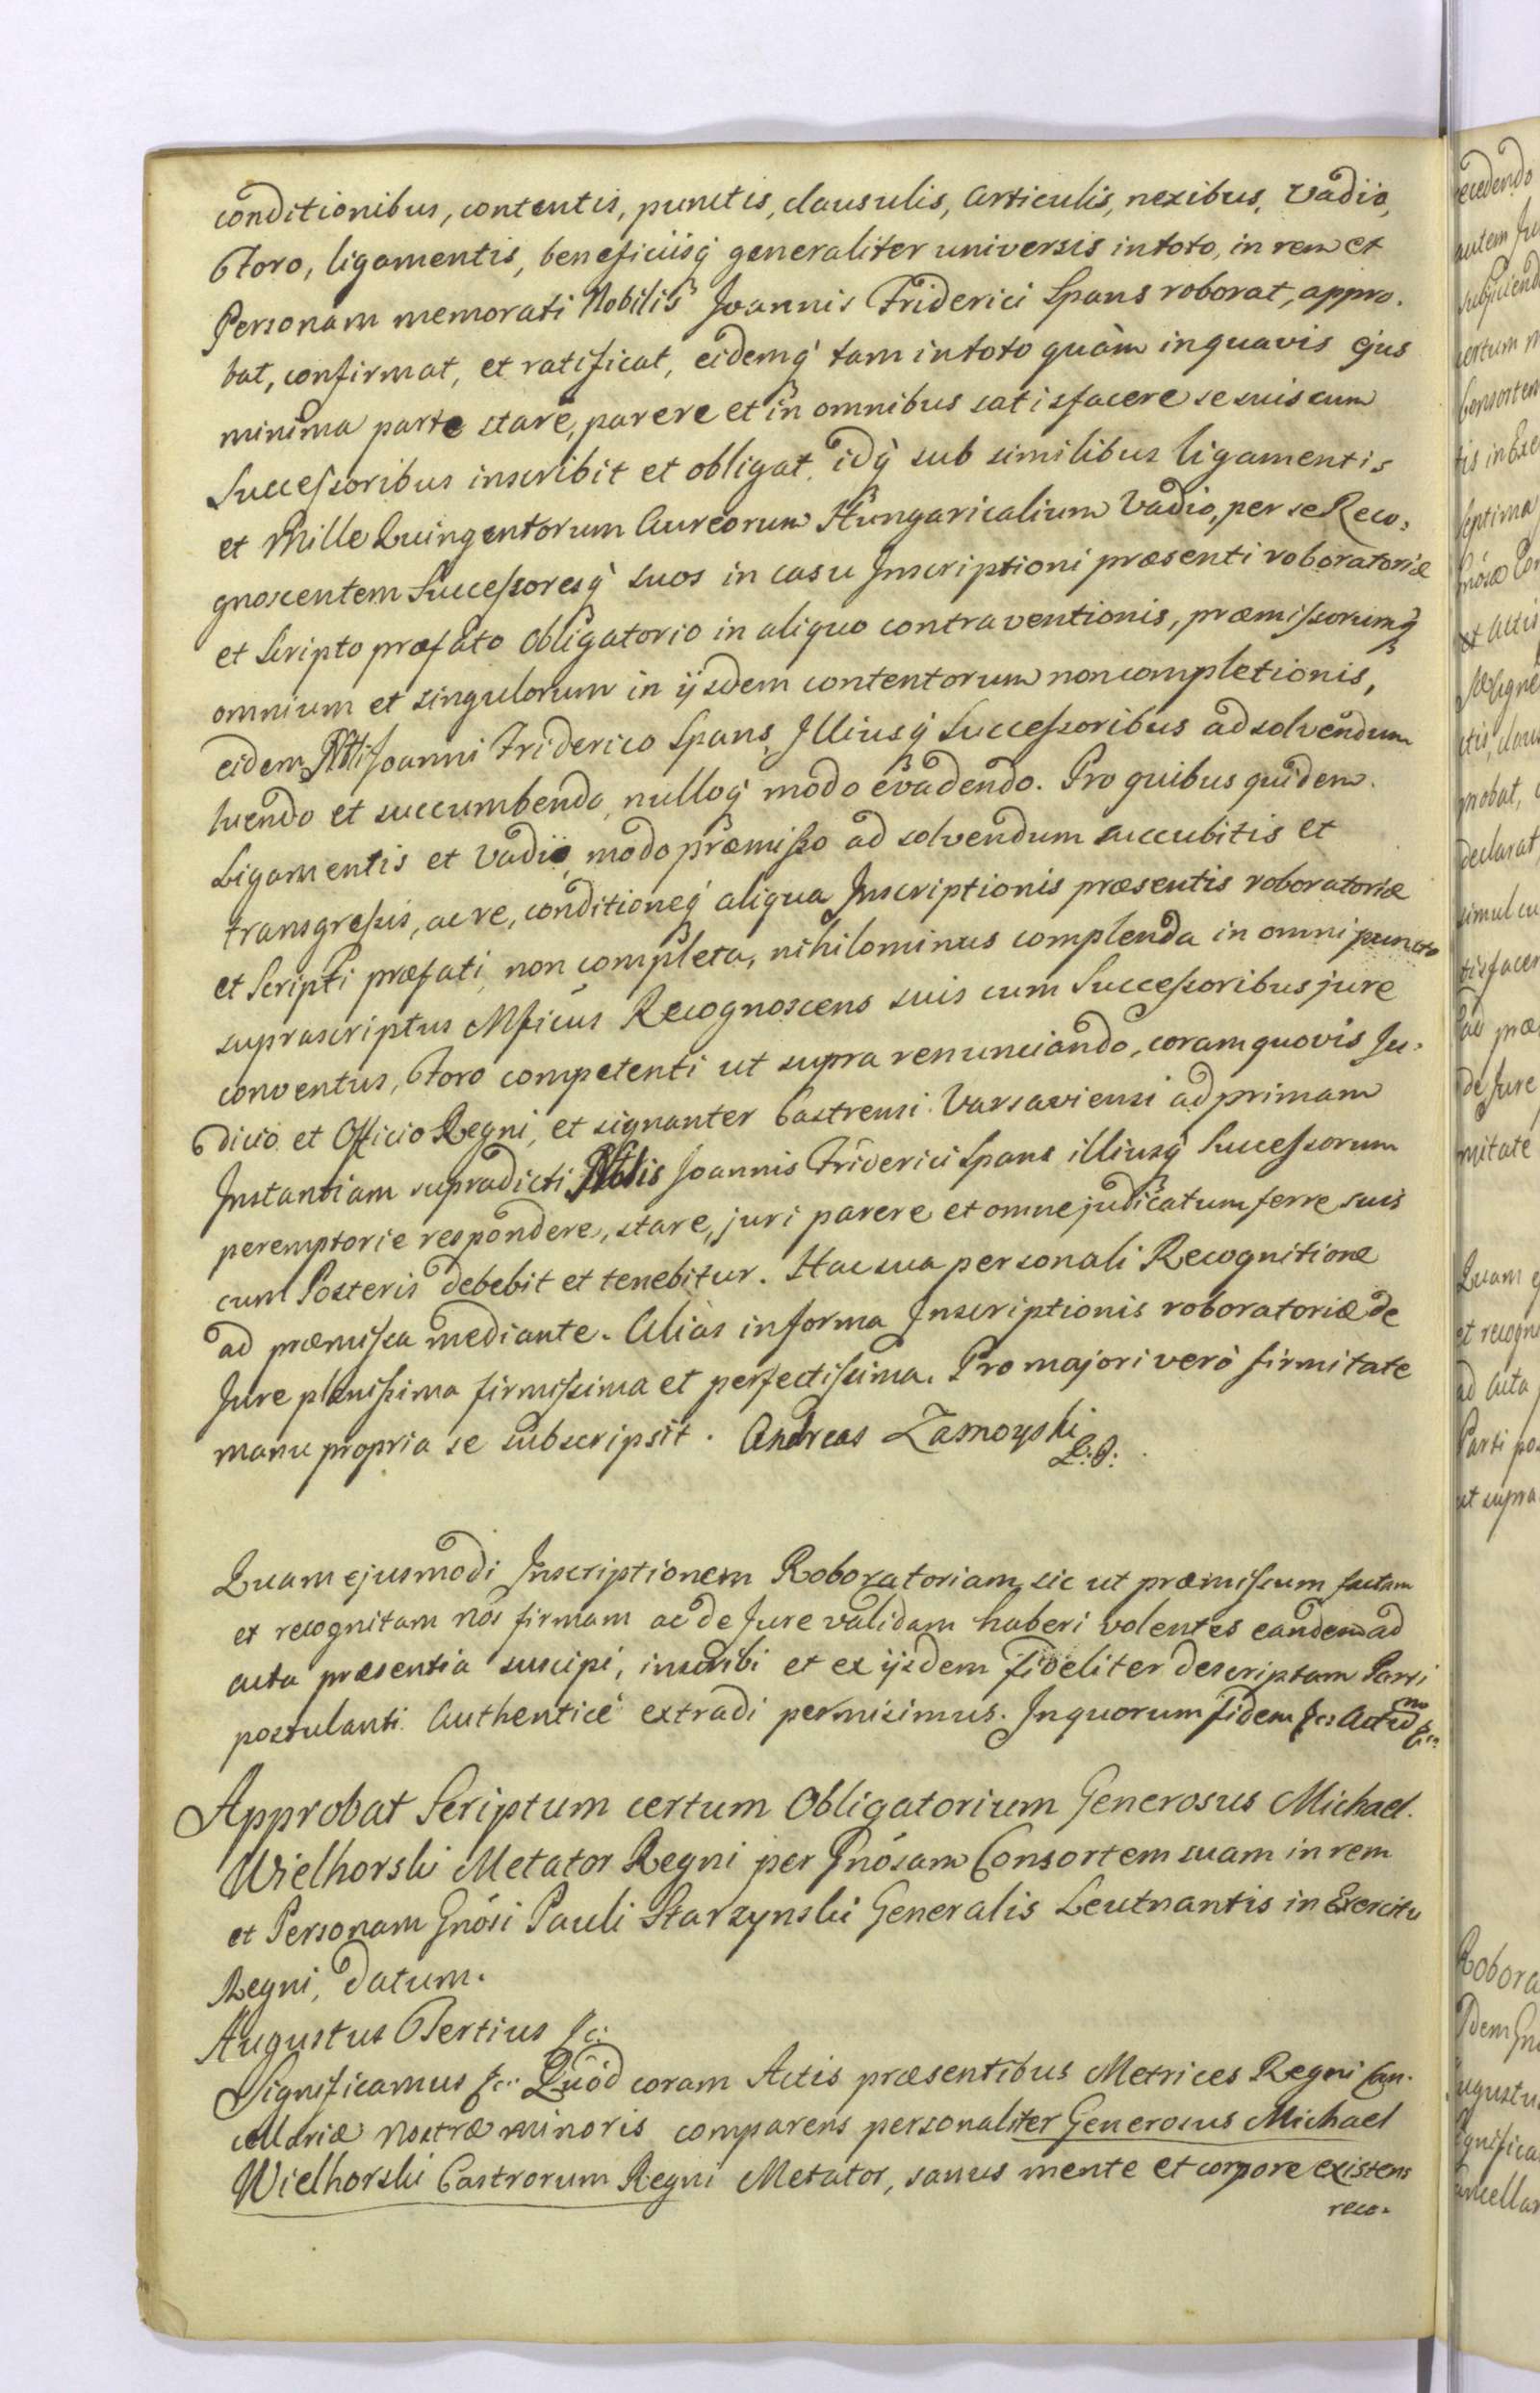 conditionibus, contentis, punctis, clausulis, articulis, nexibus, Vadio,
Foro, ligamentis, beneficiisq́ generaliter universis in toto, in rem et
Personam memorati Nobilis Joannis Friderici Spans roborat, appro-
bat, confirmat, et ratificat, eidemq́ tam in toto quàm in quavis ejus
minima parte stare, parere et in omnibus satisfacere se suis cum
Successoribus inscribit et obligat, idq́ sub similibus ligamentis
et Mille Quingentorum Aureorum Hungaricalium Vadio, per se Reco-
gnoscentem Successoresq́ suos in casu Inscriptioni præsenti roboratoriæ
et Scripto præfato Obligatorio in aliquo contraventionis, præmissorumq́
omnium et singulorum in ijsdem contentorum non completionis,
eidem Nbli Joanni Friderico Spans, Illiusq́ Successoribus ad solvendum
luendo et succumbendo, nulloq́ modo evadendo. Pro quibus quidem
Ligamentis et Vadio, modo præmisso ad solvendum succubitis et
transgressis, ac re, conditioneq́ aliqua Inscriptionis præsentis roboratoriæ
et Scripti præfati, non completa, nihilominus complenda in omni puncto
suprascriptus Mficus Recognoscens suis cum Successoribus jure
conventus, Foro competenti ut supra renunciando, coram quovis Ju-
dicio et Officio Regni, et signanter Castrensi Varsaviensi ad primam
Instantiam supradicti Nblis Joannis Friderici Spans illiusq́ Successorum
peremptorie respondere, stare, juri parere et omne judicatum ferre suis
cum Posteris debebit et tenebitur. Hac sua personali Recognitione
ad præmissa mediante. Aliàs in forma Inscriptionis roboratoriæ de
Jure plenissima firmissima et perfectissima. Pro majori verò firmitate
manu propria se subscripsit. Andreas Zamoyski
Quam ejusmodi Inscriptionem Roboratoriam, sic ut præmissum factam
et recognitam nos firmam ac de Jure validam haberi volentes eandem ad
acta præsentia suscipi, inscribi et ex ijsdem fideliter descriptam Parti
postulanti Authenticè extradi permisimus. In quorum fidem &c: Actum &c:
Approbat Scriptum certum Obligatorium Generosus Michael
Wielhorski Metator Regni per Gnósam Consortem suam in rem
et Personam Gnósi Pauli Starzynski Generalis Leutnantis in Exercitu
Regni, datum.
Augustus Tertius &c:
Significamus &c: Quod coram Actis præsentibus Metrices Regni Can-
cellariæ Nostræ minoris comparens personaliter Generosus Michael
Wielhorski Castrorum Regni Metator, sanus mente et corpore existens
reco-